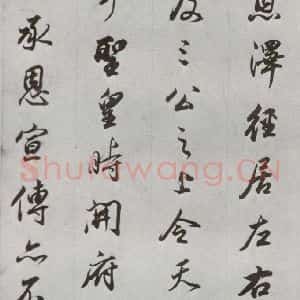 恩澤徑居左右
及三公之上今天
聖皇時開府
承恩宣傳亦不
Shufawang.CN